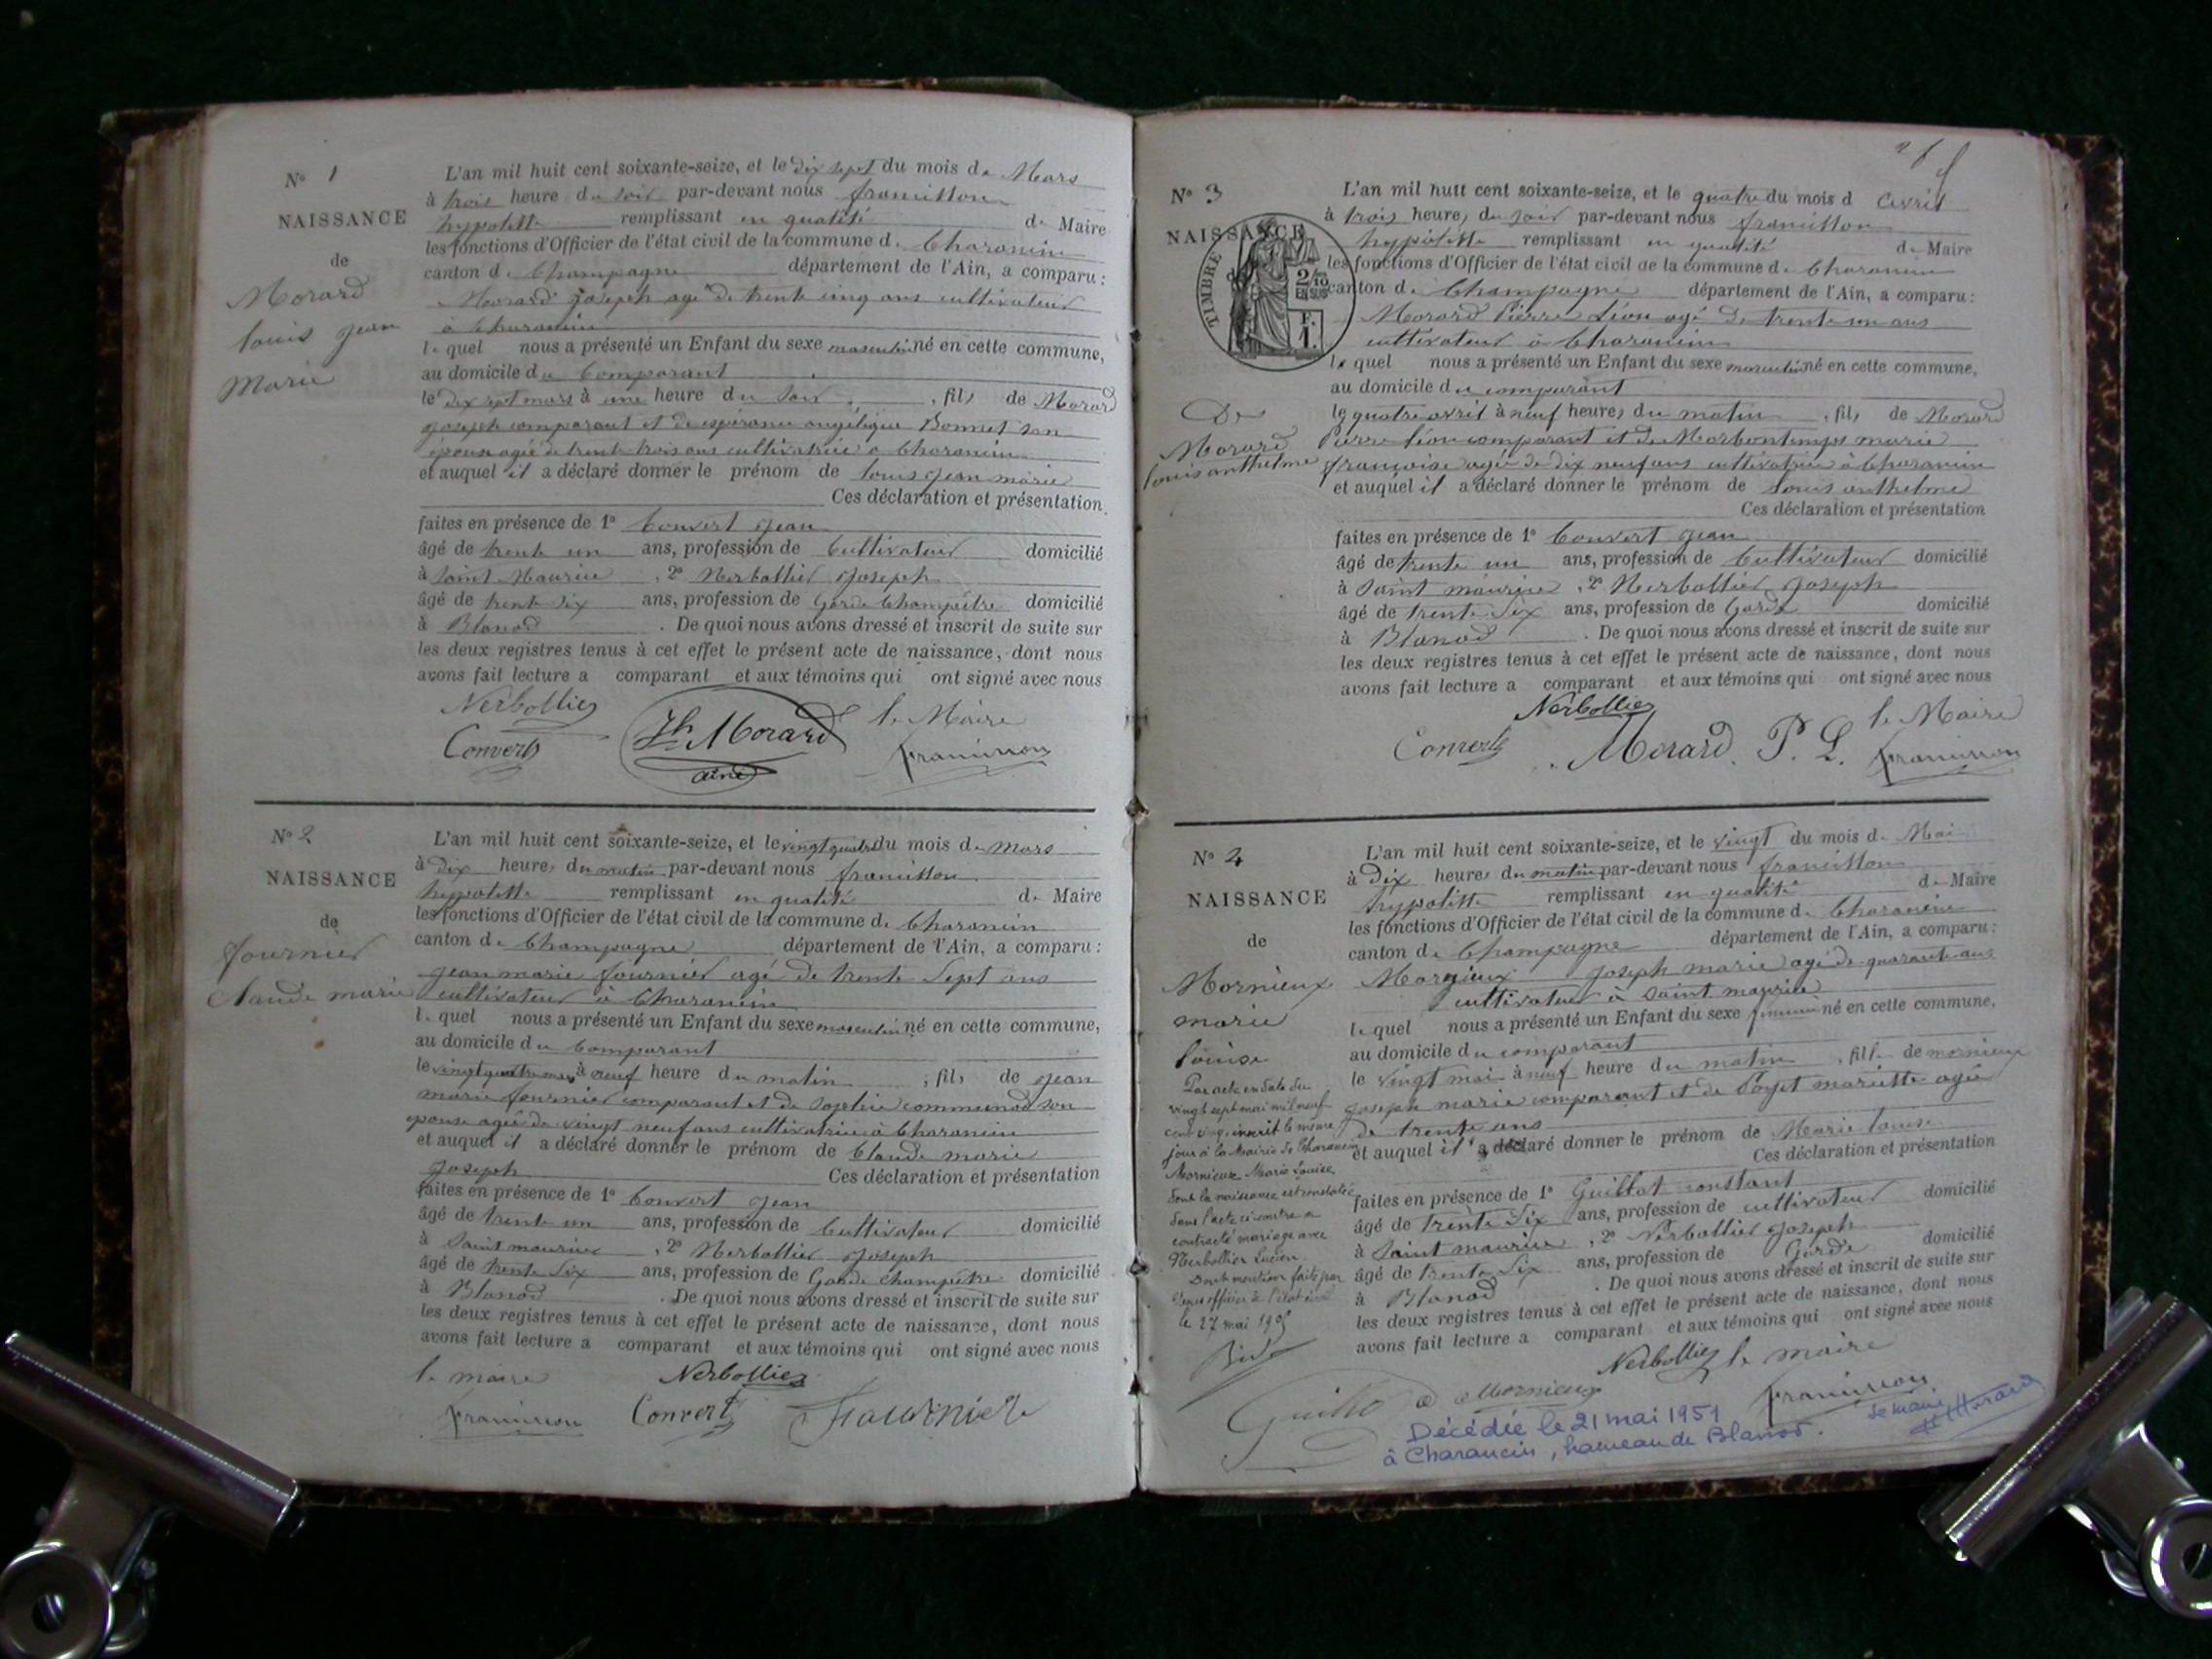 N° 1
NAISSANCE
de
Morard
louis jean
Marie
L'an mil huit cent soixante-seize, et le dix sept du mois de Mars
à trois heure du soir par-devant nous francillon
hypolitte remplissant en qualité de Maire
les fonctions d'Officier de l'état civil de la commune de Charancin
canton de Champagne département de l'Ain, a comparu :
Morard joseph agé de trente cinq ans cultivateur
à Charancin
lequel nous a présenté un Enfant du sexe masculin né en cette commune,
au domicile du Comparant
le dix sept mars à une heure du soir, fils de Morard
joseph comparant et de espérance angélique Bonnet son
épouse agée de trente trois ans cultivatrice à Charancin
et auquel il a déclaré donner le prénom de louis jean marie
Ces déclaration et présentation
faites en présence de 1° Convert jean
âgé de trente un ans, profession de Cultivateur domicilié
à Saint Maurice, 2° Nerbollier Joseph
âgé de trente six ans, profession de Garde Champêtre domicilié
à Blanod. De quoi nous avons dressé et inscrit de suite sur
les deux registres tenus à cet effet le présent acte de naissance, dont nous
avons fait lecture a comparant et aux témoins qui ont signé avec nous
Nerbollier
Convert Jh Morard le Maire
ainé francillon
N° 2
NAISSANCE
de
fournier
Claude marie
L'an mil huit cent soixante-seize, et le vingt quatre du mois de mars
à dix heures du matin par-devant nous francillon
hypolitte remplissant en qualité de Maire
les fonctions d'Officier de l'état civil de la commune de Charancin
canton de Champagne département de l'Ain, a comparu :
jean marie fournier agé de trente sept ans
cultivateur à Charancin
lequel nous a présenté un Enfant du sexe masculin né en cette commune,
au domicile du Comparant
le vingt quatre mars à neuf heure du matin, fils de jean
marie fournier comparant et de sophie communod son
epouse agée de vingt neuf ans cultivatrice à Charancin
et auquel il a déclaré donner le prénom de Claude marie
joseph Ces déclaration et présentation
faites en présence de 1° Convert jean
âgé de trente un ans, profession de Cultivateur domicilié
à Saint maurice, 2° Nerbollier Joseph
âgé de trente six ans, profession de Garde Champêtre domicilié
à Blanod. De quoi nous avons dressé et inscrit de suite sur
les deux registres tenus à cet effet le présent acte de naissance, dont nous
avons fait lecture a comparant et aux témoins qui ont signé avec nous
le maire Nerbollier
francillon Convert
N° 3
NAISSANCE
TIMBRE
2/10
EN SUS
F.
1.
De
Morard
louis anthelme
L'an mil huit cent soixante-seize, et le quatre du mois d Avril
à trois heures du soir par-devant nous francillon
hypolitte remplissant en qualité de Maire
les fonctions d'Officier de l'état civil de la commune de Charancin
canton de Champagne département de l'Ain, a comparu :
Morard Pierre Léon agé de trente un ans
cultivateur à Charancin
lequel nous a présenté un Enfant du sexe masculin né en cette commune,
au domicile du comparant
le quatre avril à neuf heures du matin, fils de Morard
Pierre léon comparant et de Morbontemps marie
françoise agée de dix neuf ans cultivatrice à Charancin
et auquel il a déclaré donner le prénom de louis anthelme
Ces déclaration et présentation
faites en présence de 1° Convert jean
âgé de trente un ans, profession de Cultivateur domicilié
à Saint maurice, 2° Nerbollier Joseph
âgé de trente six ans, profession de Garde domicilié
à Blanod. De quoi nous avons dressé et inscrit de suite sur
les deux registres tenus à cet effet le présent acte de naissance, dont nous
avons fait lecture a comparant et aux témoins qui ont signé avec nous
Nerbollier
Convert Morard. P. L. le Maire
francillon
N° 4
NAISSANCE
de
Mornieux
marie
louise
Par acte en date du
vingt sept mai mil neuf
cent cinq, inscrit le même
jour à la Mairie de Charancin
Mornieux Marie Louise,
dont la naissance est constatée
dans l'acte ci contre a
contracté mariage avec
Nerbollier Lucien.
Dont mention faite par
nous officier de l'état civil
le 27 mai 1905
L'an mil huit cent soixante-seize, et le vingt du mois de Mai
à dix heures du matin par-devant nous francillon
hypolitte remplissant en qualité de Maire
les fonctions d'Officier de l'état civil de la commune de Charancin
canton de Champagne département de l'Ain, a comparu :
Mornieux joseph marie agé de quarante ans
cultivateur à saint maurice
lequel nous a présenté un Enfant du sexe feminin né en cette commune,
au domicile du comparant
le vingt mai à neuf heure du matin, fille de mornieux
joseph marie comparant et de Poyet mariette agée
de trente ans
et auquel il a déclaré donner le prénom de Marie louise
Ces déclaration et présentation
faites en présence de 1° Guillot constant
âgé de trente six ans, profession de cultivateur domicilié
à Saint maurice, 2° Nerbollier joseph
âgé de trente six ans, profession de Garde domicilié
à Blanod. De quoi nous avons dressé et inscrit de suite sur
les deux registres tenus à cet effet le présent acte de naissance, dont nous
avons fait lecture a comparant et aux témoins qui ont signé avec nous
Nerbollier le maire
Mornieux francillon
Décédée le 21 mai 1951 le maire
à Charancin, hameau de Blanod. Morard